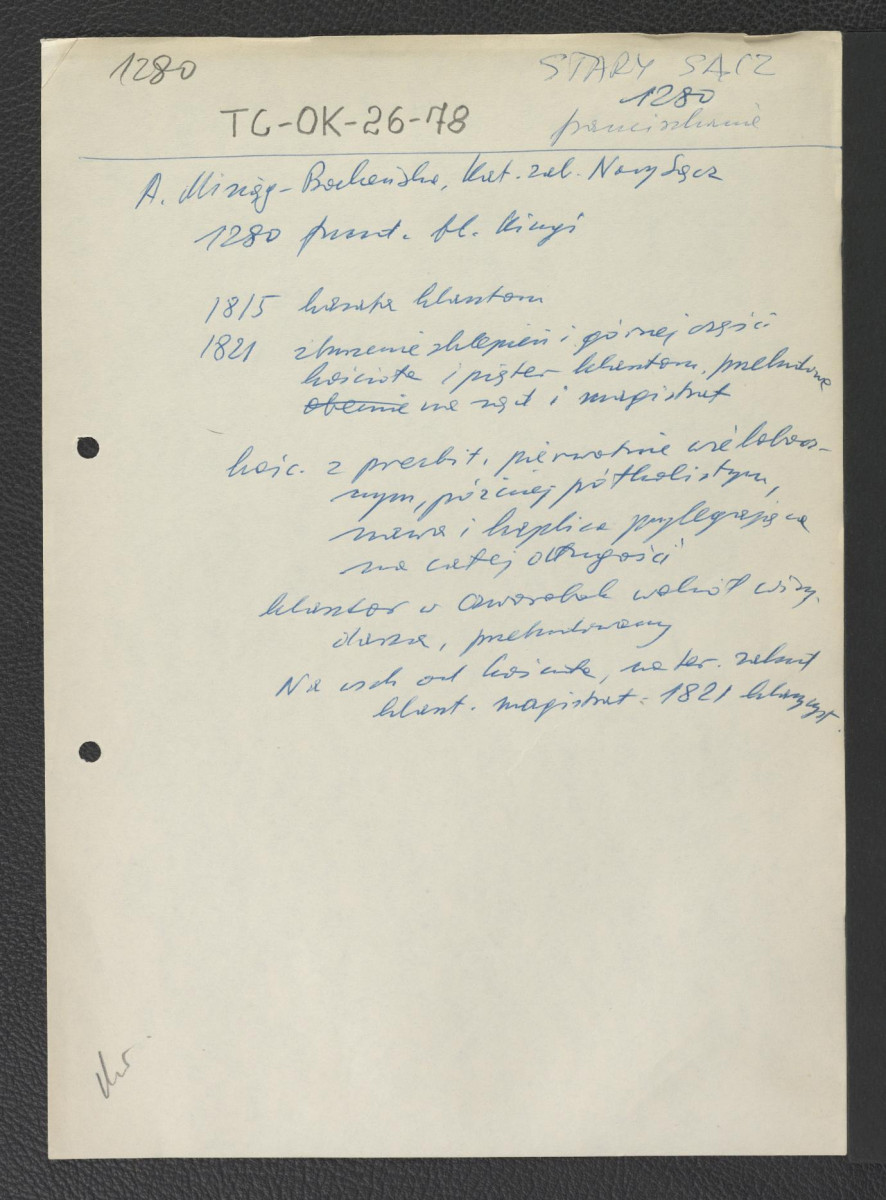 1280
STARY SĄCZ
1280
franciszkanie
TC-OK-26-78
A. Misiąg-Bocheńska, Kat. zab. Nowy Sącz
1280 fund. bł. Kingi
1815 kasata klasztoru
1821 zburzenie sklepień i górnej części
kościoła i pięter klasztoru, przebudowa
obecnie na sąd i magistrat
kośc. z prezbit. pierwotnie wielobocz-
nym, później półkolistym,
nawa i kaplica przylegająca
na całej długości
klasztor w czworobok wokół wiry-
darza, przebudowany
Na wsch od kościoła, na ter. zabud
klaszt. magistrat - 1821 klasycyst.